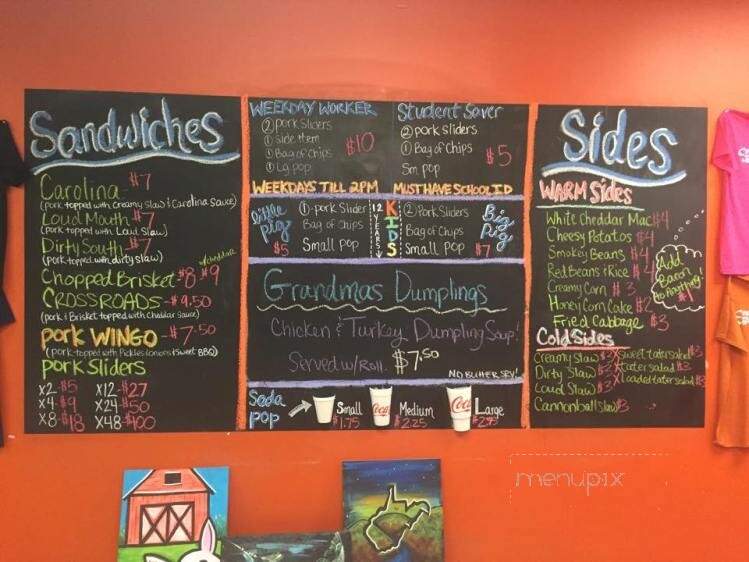 Sandwiches
Carolina - $7
(pork topped with Creamy Slaw & Carolina Sauce)
Loud Mouth - $7
(pork topped with Loud Slaw)
Dirty South - $7
(pork topped with dirty slaw)
w/cheddar
Chopped Brisket - $8 $9
CROSSROADS - $9.50
(pork & Brisket topped with Cheddar Sauce)
pork WINGO - $7.50
(pork topped with Pickles Onions & Sweet BBQ)
pork Sliders
x2-$5 x12-$27
x4-$9 x24-$50
x8-$18 x48-$100
WEEKDAY WORKER
② pork Sliders
① Side item
① Bag of Chips $10
① Lg. pop
WEEKDAYS TILL 2PM
Student Saver
② pork sliders
① Bag of Chips $5
Sm pop
MUST HAVE SCHOOL ID
little pig
①-pork Slider
Bag of Chips
Small pop
$5
12 YEARS
KIDS
② Pork Sliders
Bag of Chips
Small pop $7
Big pig
Grandmas Dumplings
Chicken & Turkey Dumpling Soup!
Served w/Roll. $7.50
Soda pop
Small $1.75
Medium $2.25
Large
Coca
Sides
WARM Sides
White Cheddar Mac $4
Cheesy Potatos - $4
Smokey Beans - $4
Red Beans & Rice - $4
Creamy Corn - $3
Honey Corn Cake - $2
Fried Cabbage - $3
Add Bacon to Anything! $1
Cold Sides
Creamy Slaw $3 Sweet tater salad $3
Dirty Slaw $3 tater salad $3
Loud Slaw $3 Loaded tater salad $3
Cannonball slaw $3
menupix